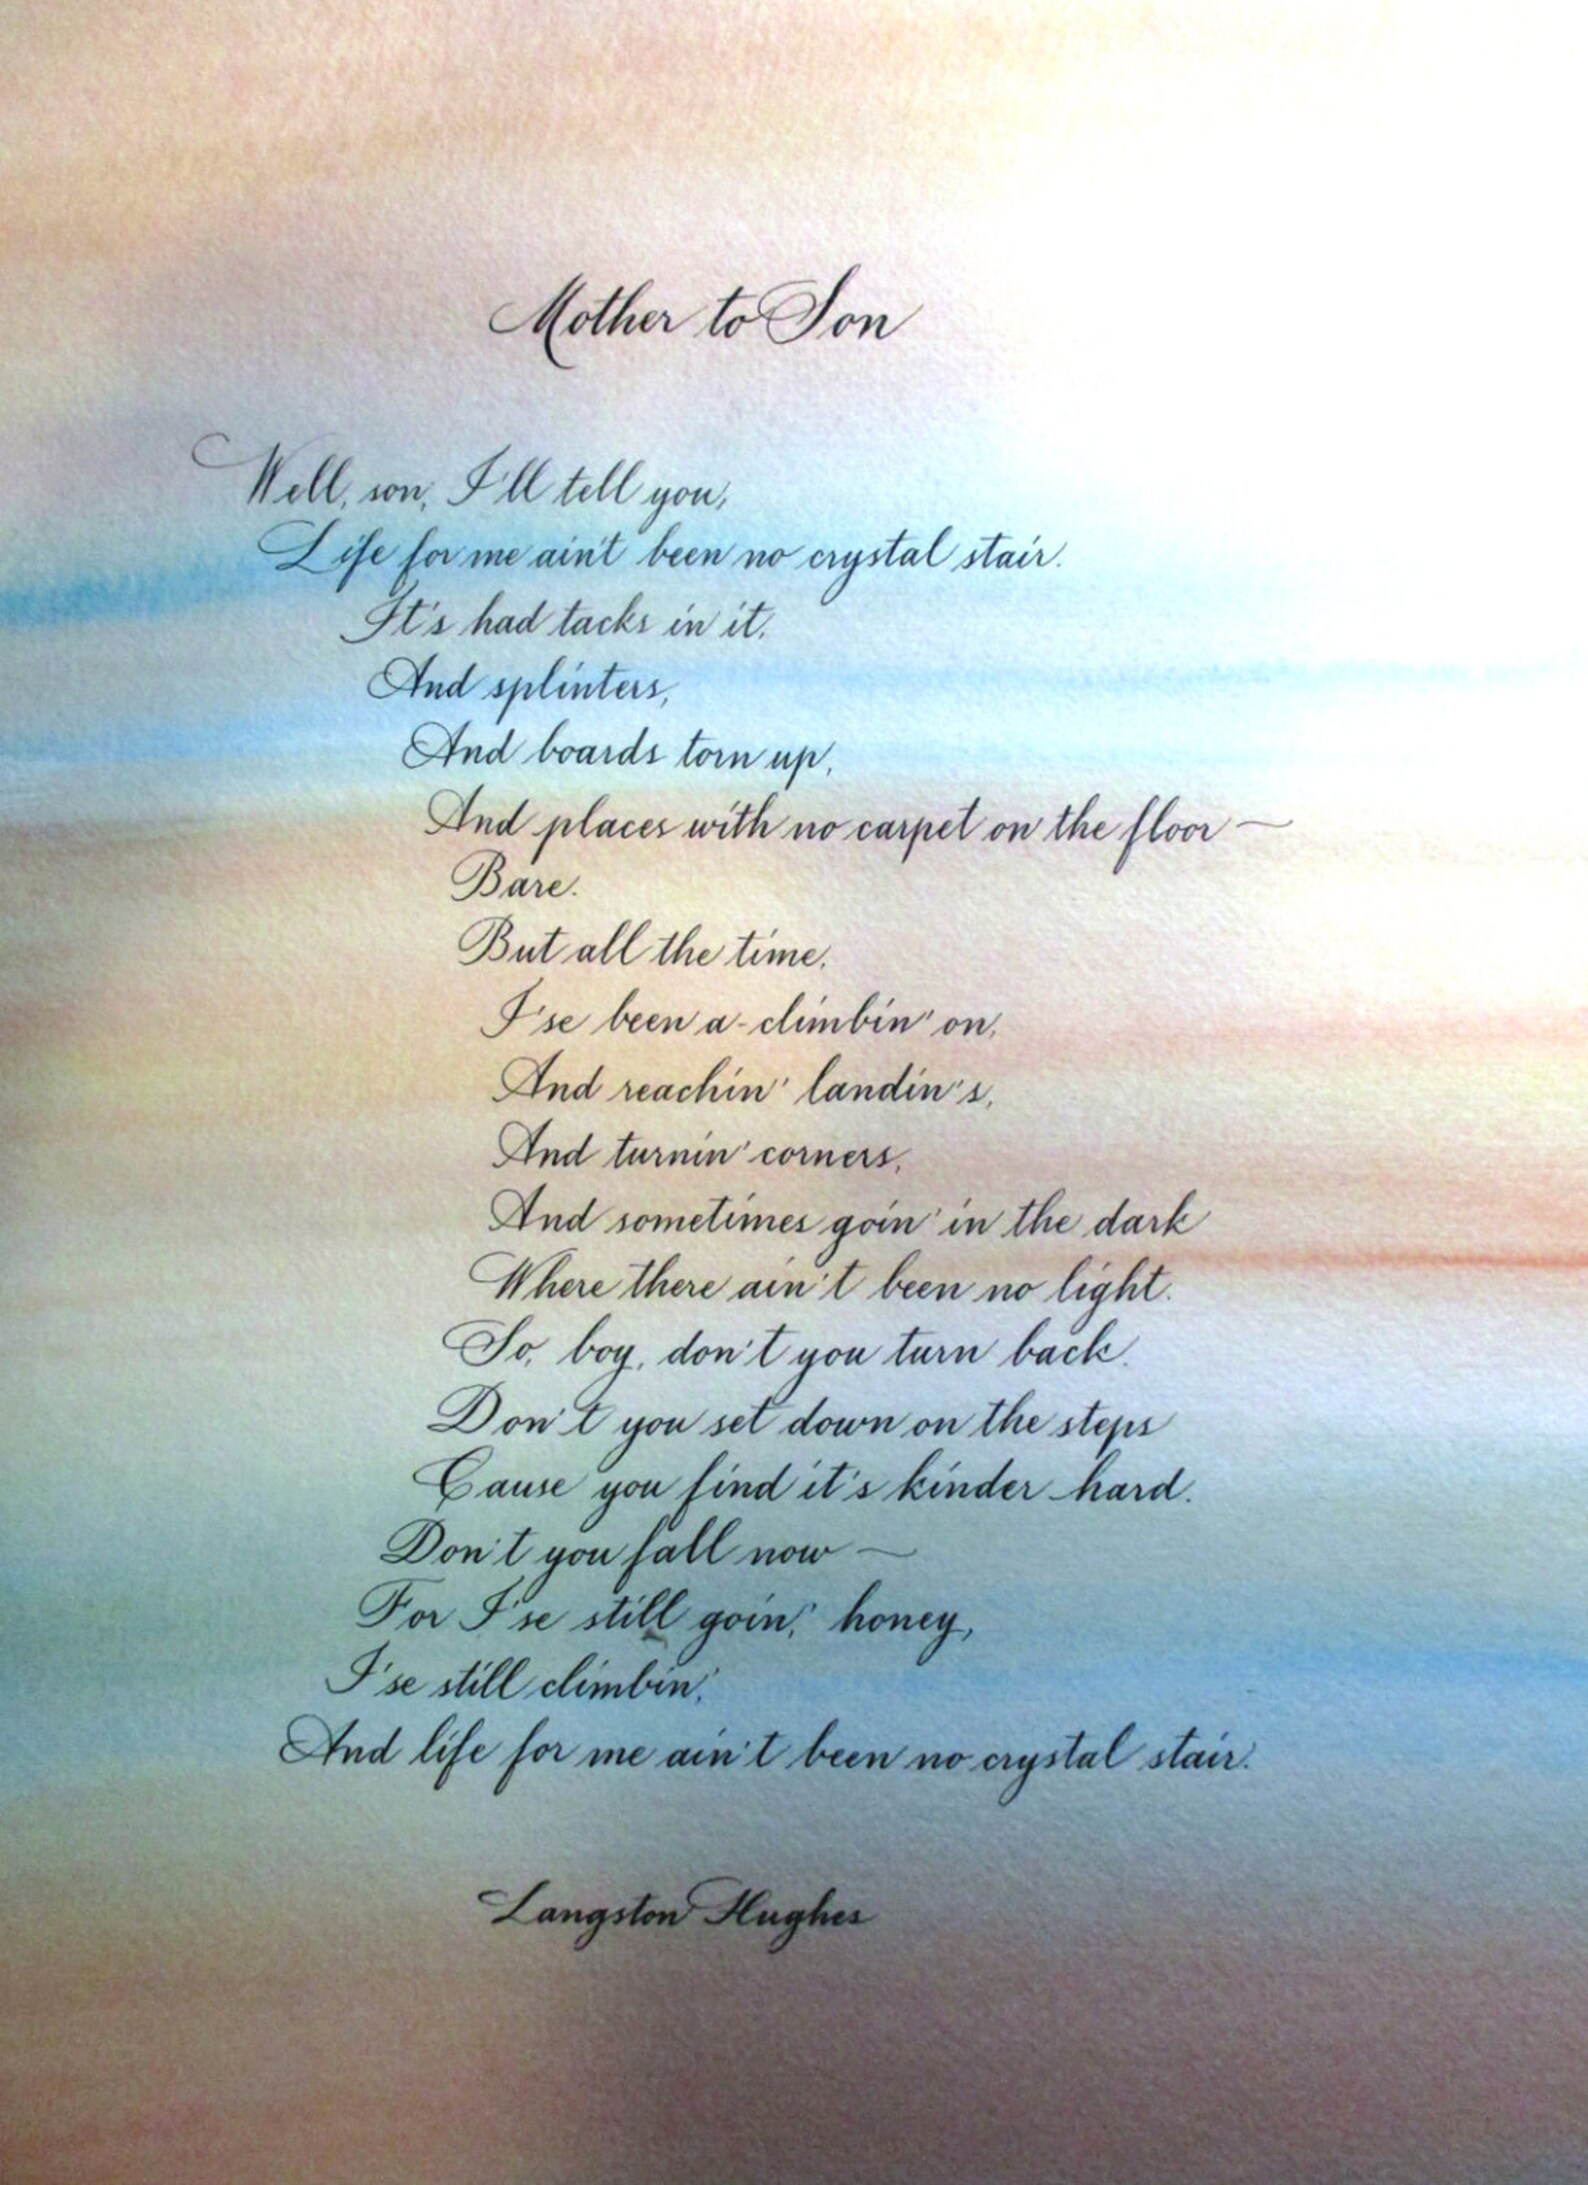 Mother to Son
Well, son, I'll tell you,
Life for me ain't been no crystal stair.
It's had tacks in it,
And splinters,
And boards torn up,
And places with no carpet on the floor —
Bare.
But all the time,
I'se been a-climbin' on,
And reachin' landin's,
And turnin' corners,
And sometimes goin' in the dark
Where there ain't been no light.
So, boy, don't you turn back.
Don't you set down on the steps
Cause you find it's kinder hard.
Don't you fall now —
For I'se still goin', honey,
I'se still climbin',
And life for me ain't been no crystal stair.
Langston Hughes